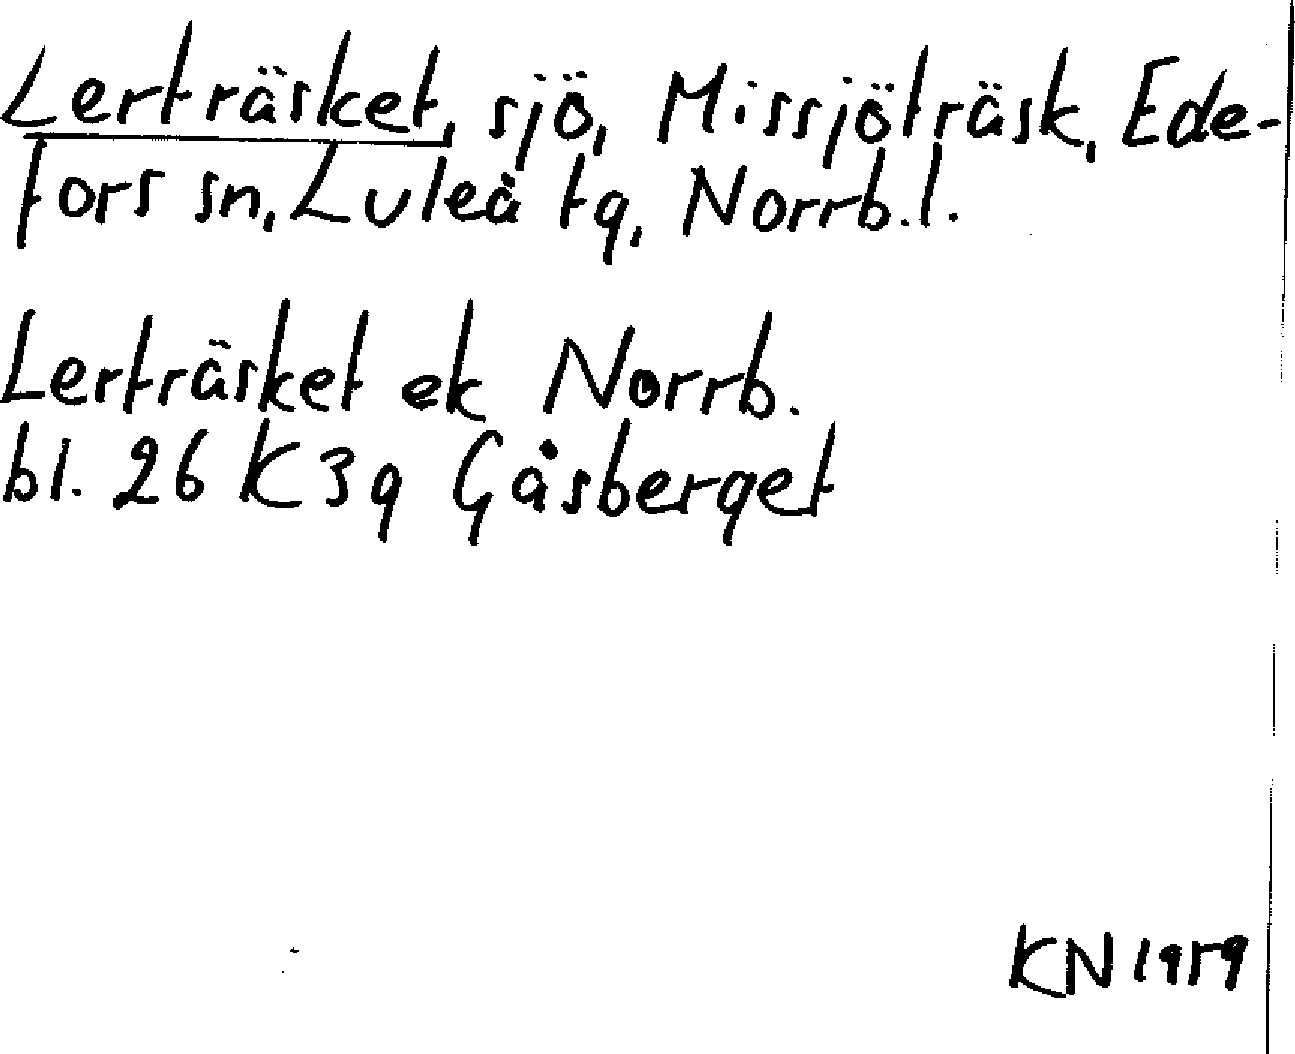 Lerträsket, sjö, Missjöträsk, Ede-
fors sn, Luleå tg, Norrb.l.
Lerträsket ek Norrb.
bl. 26 K 3g Gåsberget
KN 1959